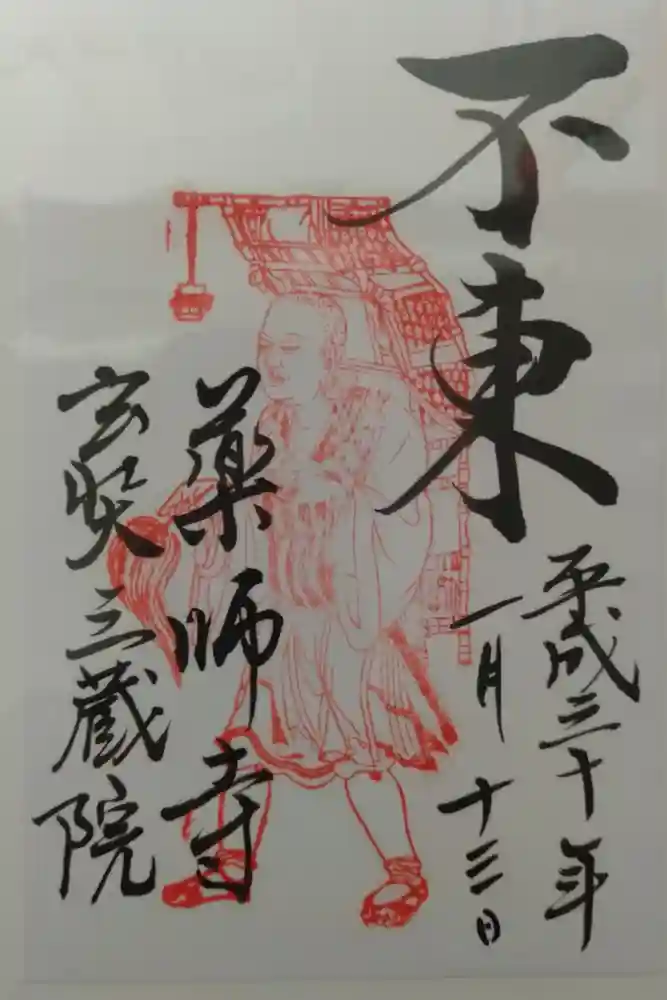 不東
平成三十年
一月十三日
藥師寺
玄奘三蔵院